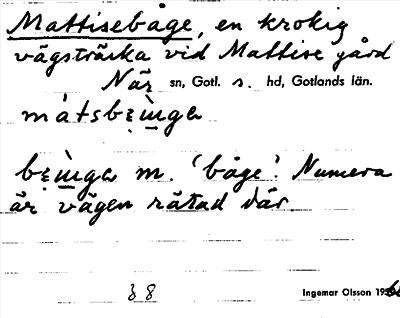 Mattisebåge, en krokig
vägsträcka vid Mattise gård
När sn, Gotl. s. hd, Gotlands län.
mátsbɛ̀ı̲ŋga
bɛ̀ı̲ŋga m. 'båge'. Numera
är vägen rätad där.
38
Ingemar Olsson 19